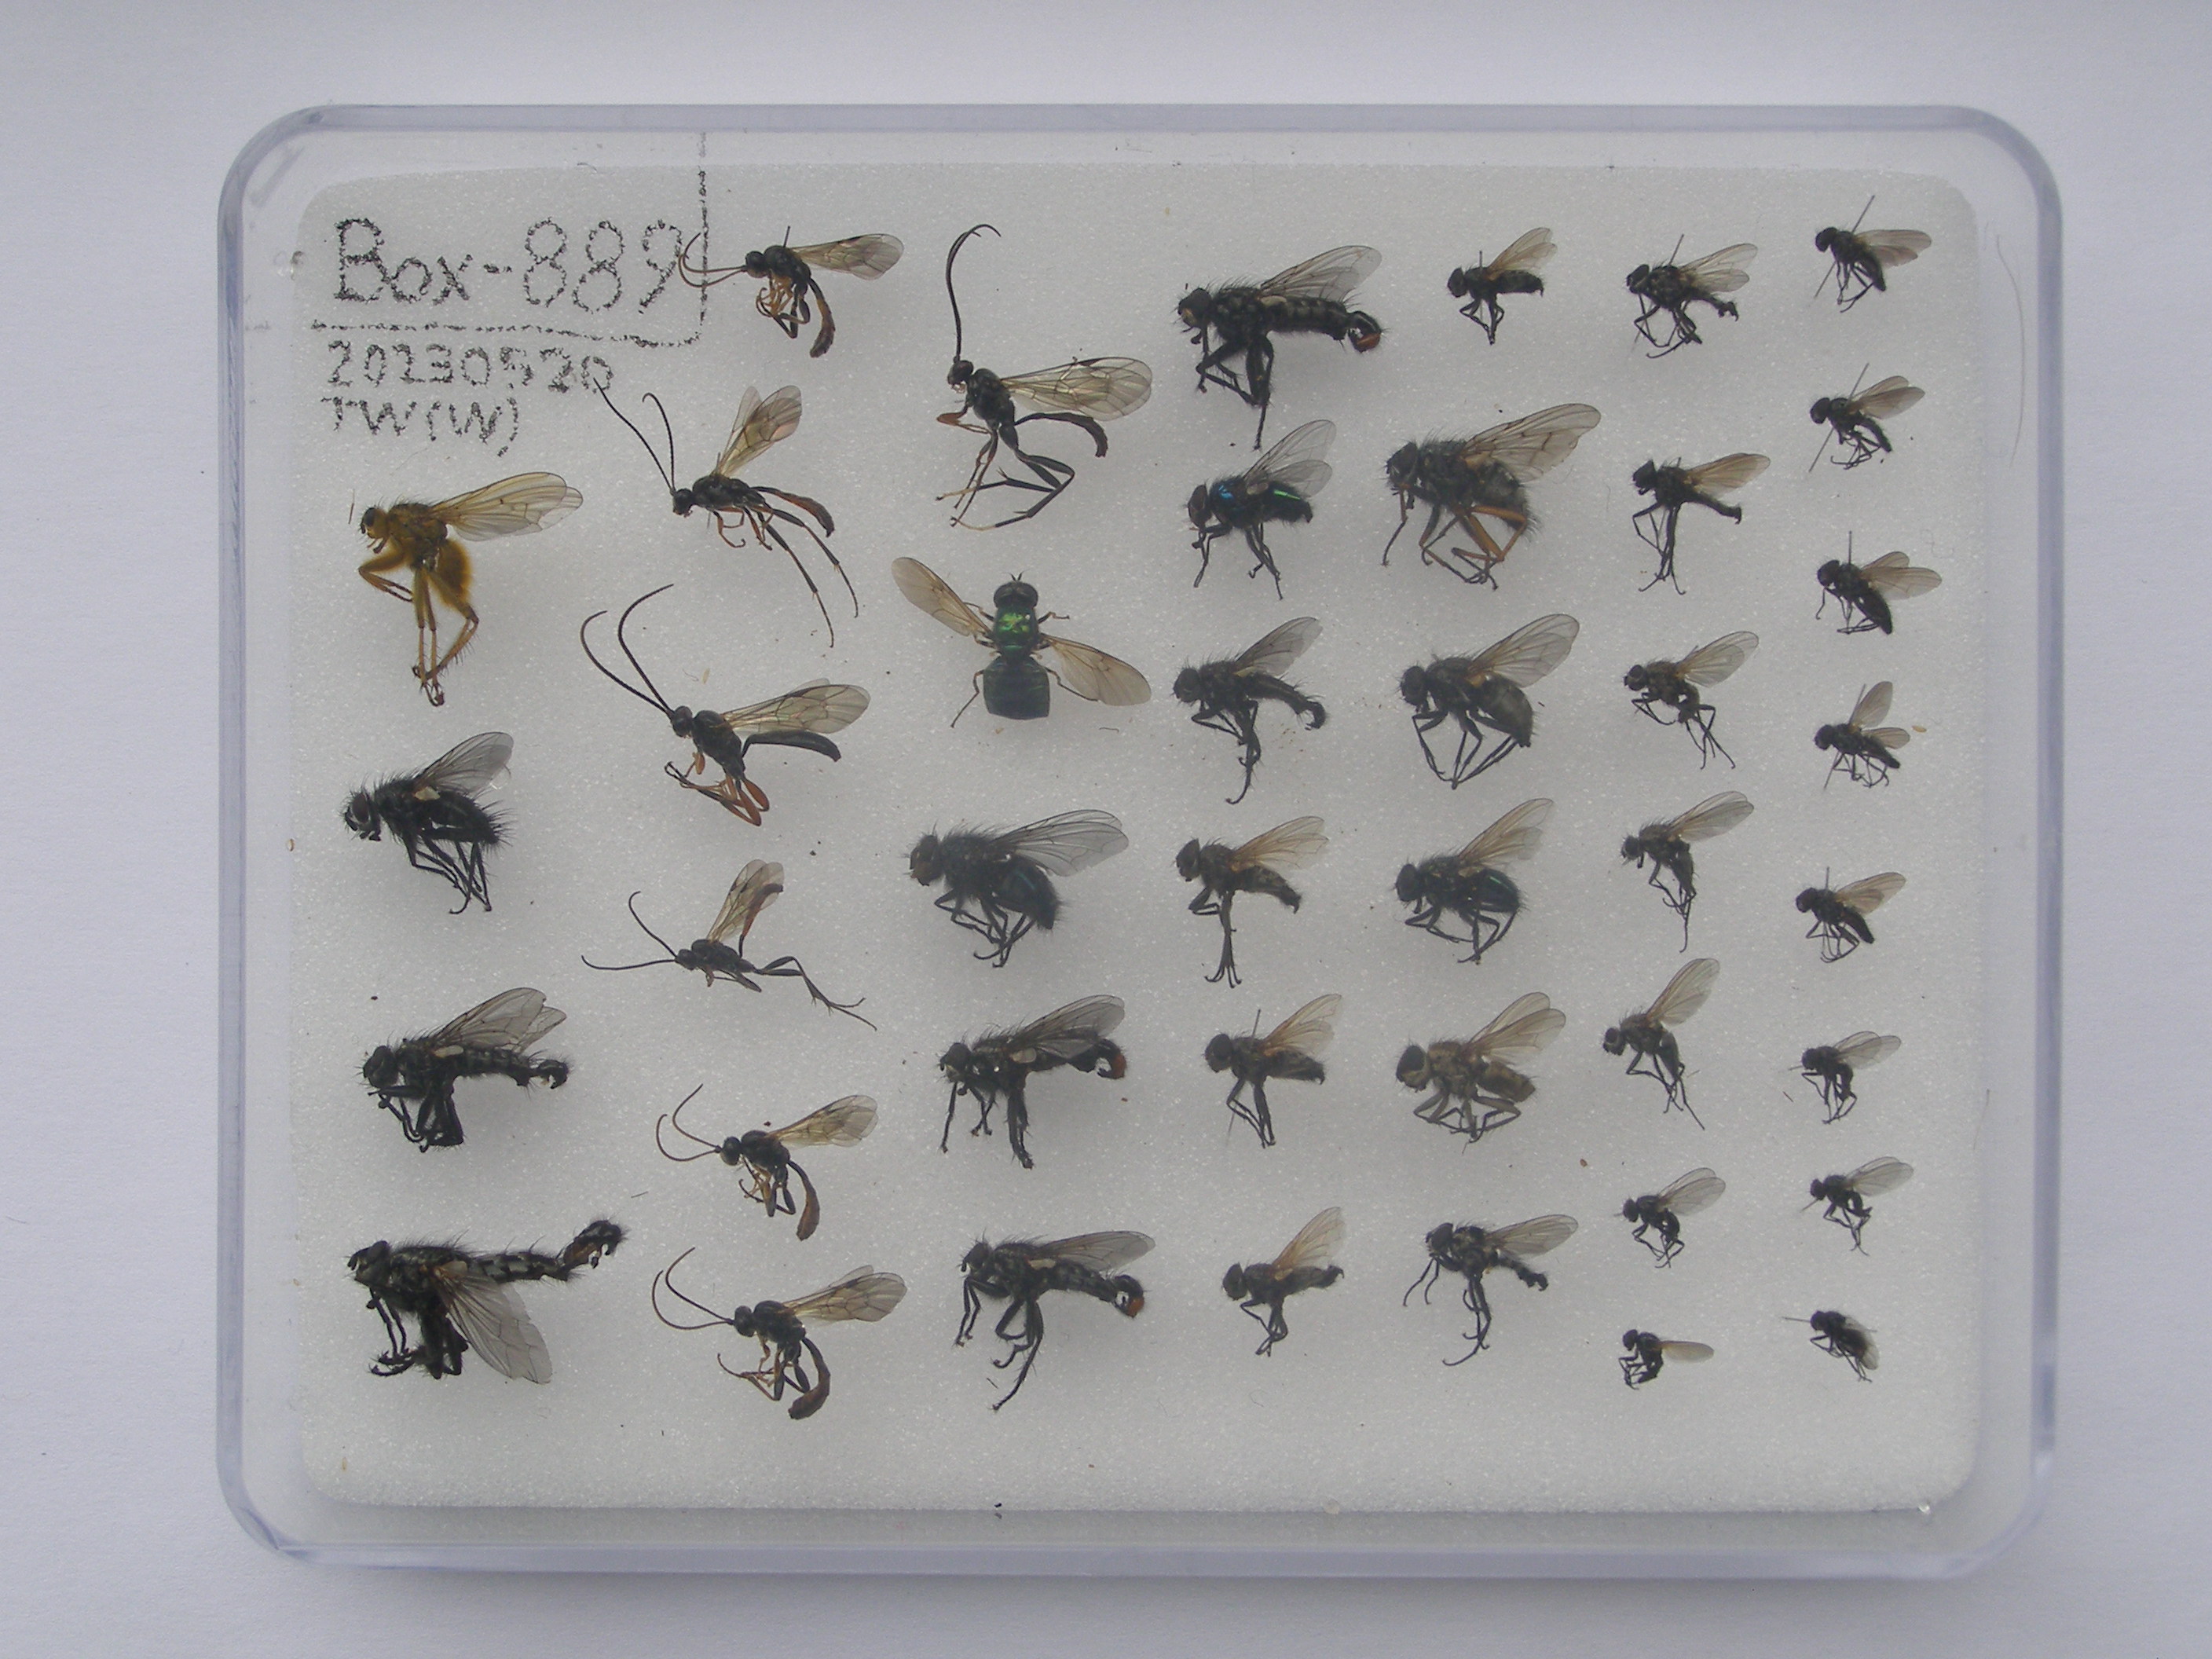 Box-889
20130520
TW(W)